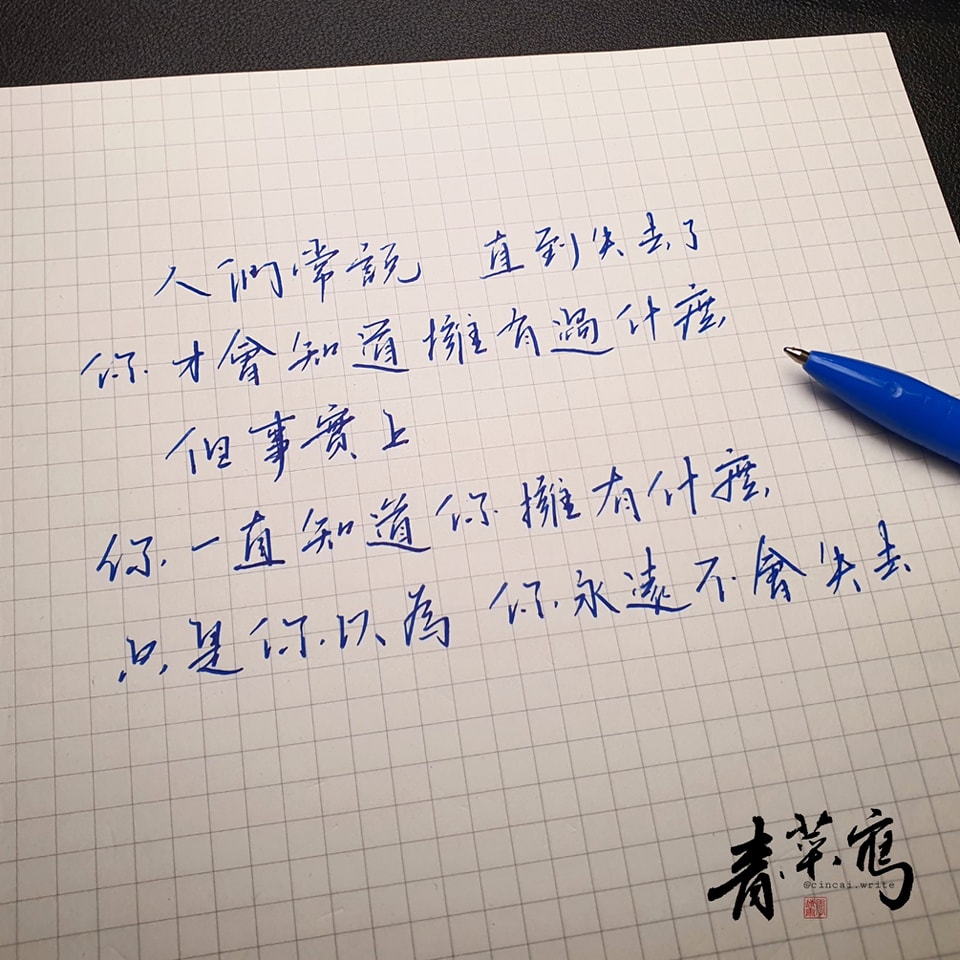 人們常說 直到失去了
你才會知道擁有過什麼
但事實上
你一直知道你擁有什麼
只是你以為 你永遠不會失去
青菜寫
@cincai.write